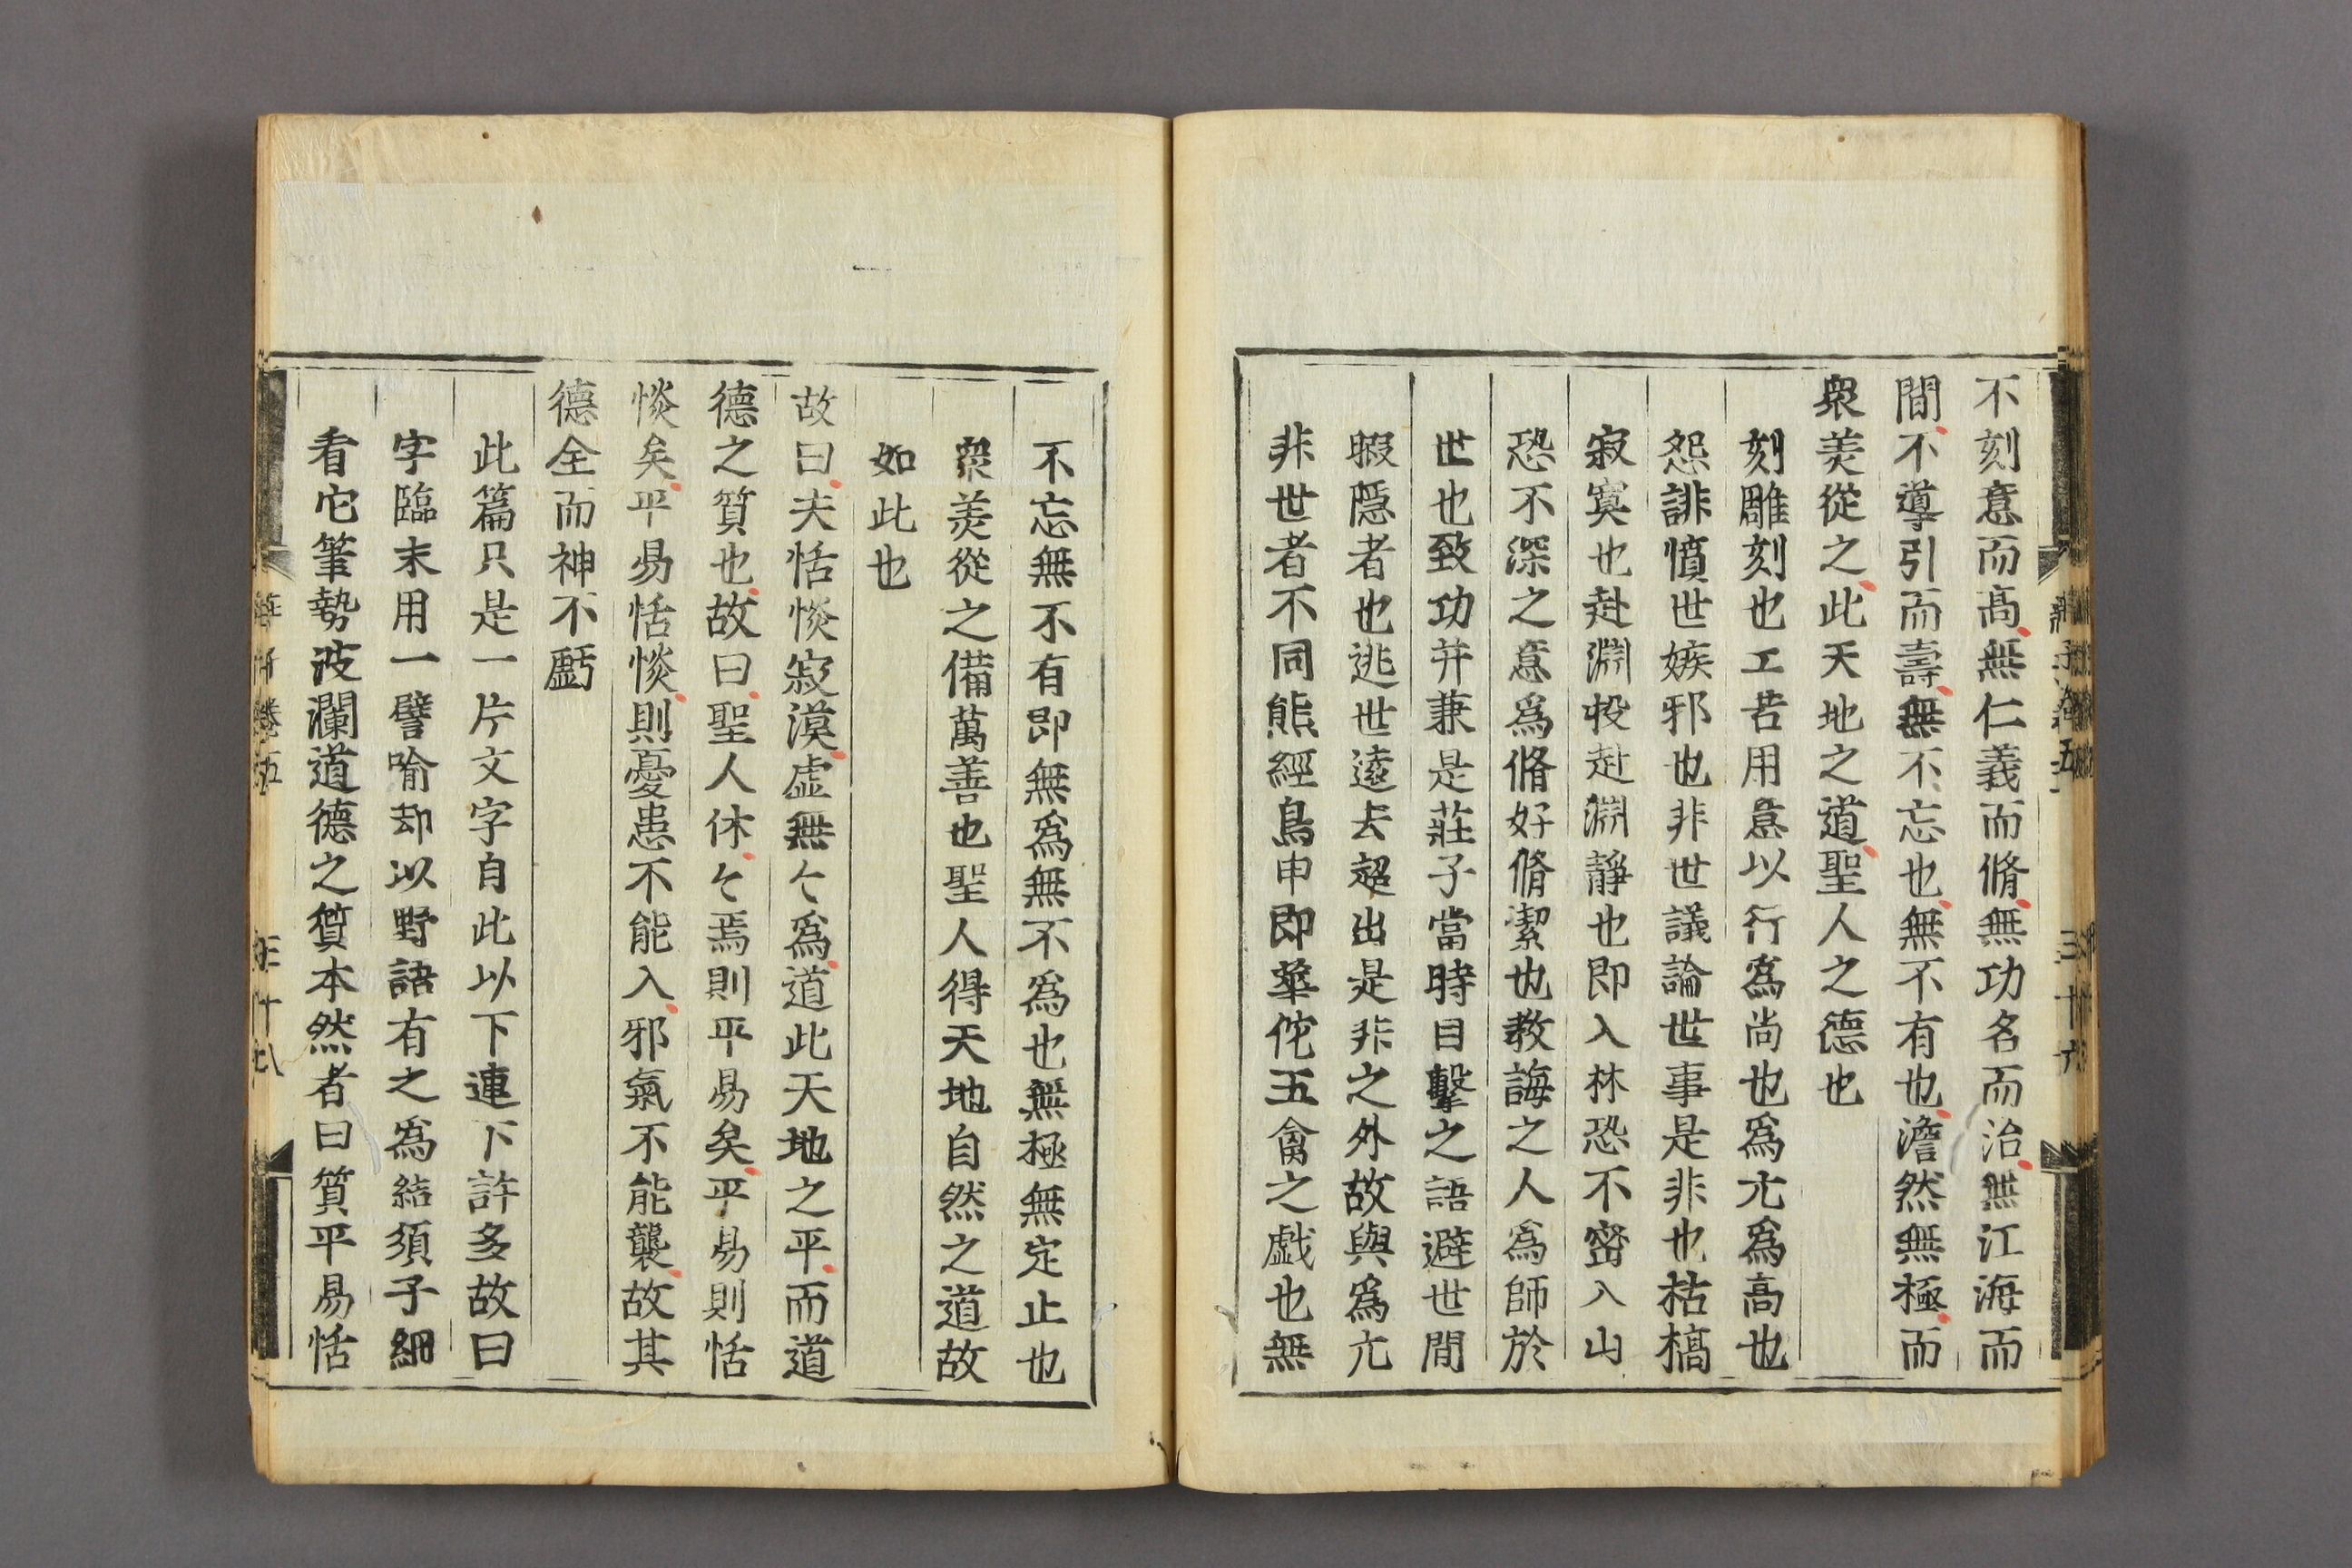 不刻意而高無仁義而脩無功名而治無江海而
閒不導引而壽無不忘也無不有也澹然無極而
衆美從之此天地之道聖人之德也
刻雕刻也工苦用意以行為尚也為亢為高也
怨誹憤世嫉邪也非世議論世事是非也枯槁
寂寞也赴淵投赴淵靜也即入林恐不密入山
恐不深之意為脩好脩潔也教誨之人為師於
世也致功并兼是莊子當時目擊之語避世閒
暇隱者也逃世遠去超出是非之外故與為亢
非世者不同熊經鳥申即華佗五禽之戲也無
不忘無不有即無為無不為也無極無定止也
衆美從之備萬善也聖人得天地自然之道故
如此也
故曰夫恬惔寂漠虛無〻為道此天地之平而道
德之質也故曰聖人休〻焉則平易矣平易則恬
惔矣平易恬惔則憂患不能入邪氣不能襲故其
德全而神不虧
此篇只是一片文字自此以下連下許多故曰
字臨末用一譬喻却以野語有之為結須子細
看它筆勢波瀾道德之質本然者曰質平易恬